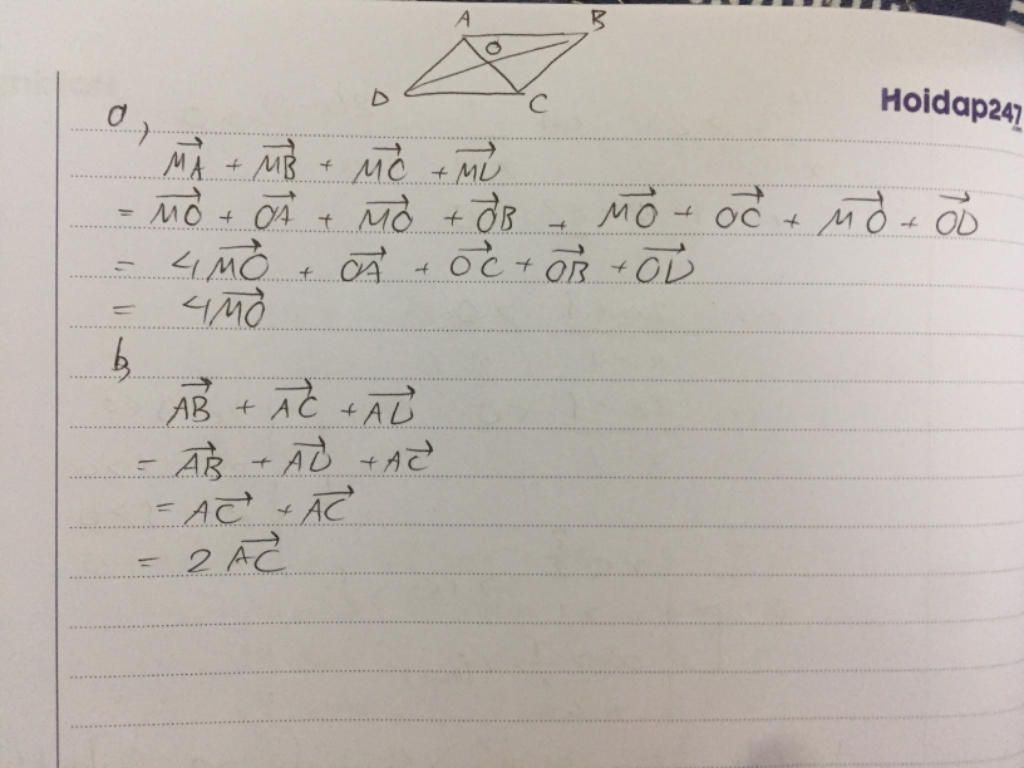 A B
O
D C
Hoidap247
.com
a,
$\overrightarrow{MA} + \overrightarrow{MB} + \overrightarrow{MC} + \overrightarrow{MD}$
$= \overrightarrow{MO} + \overrightarrow{OA} + \overrightarrow{MO} + \overrightarrow{OB} + \overrightarrow{MO} + \overrightarrow{OC} + \overrightarrow{MO} + \overrightarrow{OD}$
$= 4\overrightarrow{MO} + \overrightarrow{OA} + \overrightarrow{OC} + \overrightarrow{OB} + \overrightarrow{OD}$
$= 4\overrightarrow{MO}$
b,
$\overrightarrow{AB} + \overrightarrow{AC} + \overrightarrow{AD}$
$= \overrightarrow{AB} + \overrightarrow{AD} + \overrightarrow{AC}$
$= \overrightarrow{AC} + \overrightarrow{AC}$
$= 2\overrightarrow{AC}$